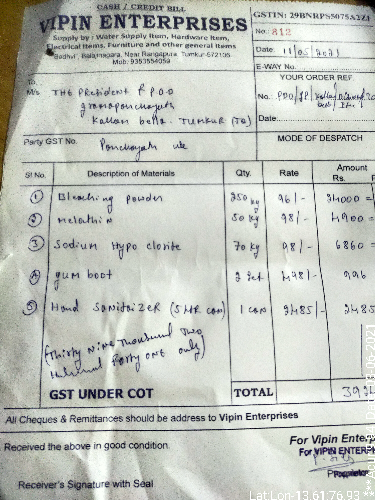 CASH / CREDIT BILL
VIPIN ENTERPRISES
Supply by : Water Supply Item, Hardware Item,
Electrical Items, Furniture and other general Items
Mob: 9353554059
GSTIN: 29BNRPS5075A2Z1
No. 812
Date: 11/05/2021
E-WAY No.
YOUR ORDER REF.
No. PDO/GP/
Date:
MODE OF DESPATCH
To,
M/s The President & PDO
gramapanchayath
Kallam bella. TUMKUR (TQ)
Party GST No. Panchayath use
Sl No. Description of Materials Qty. Rate Amount Rs.
1 Bleaching powder 250 kg 96/- 24000 =
2 Melathin 50 kg 98/- 4900 =
3 Sodium Hypo clorite 70 kg 98/- 6860 =
4 gum boot 2 set 498/- 996
5 Hand Sanitaizer (5 ltr can) 1 can 2485/- 2485
(Thirty Nine Thousand Two
Hundred Forty one only)
GST UNDER COT TOTAL 392
All Cheques & Remittances should be address to Vipin Enterprises
Received the above in good condition
For Vipin Enter
For VIPIN ENTERPR
Proprietor
Receiver's Signature with Seal
Lat Lon-13.61:76.93